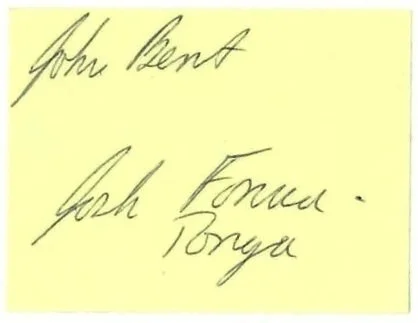 John Bent
Josh Fonua -
Tonga